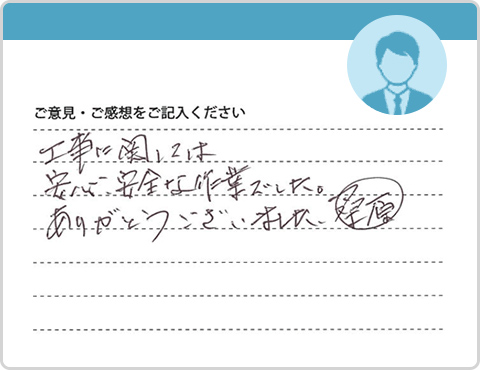 ご意見・ご感想をご記入ください
工事に関しては
安心、安全な作業でした。
ありがとうございました、桑原